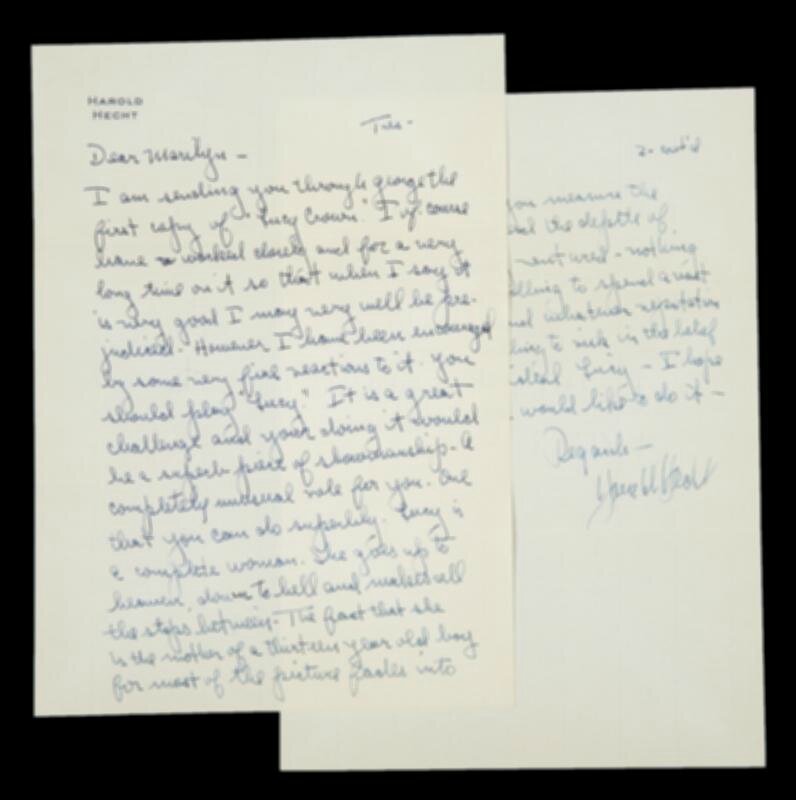 HAROLD
HECHT
Tues-
Dear Marilyn -
I am sending you through george the
first copy of "Lucy Crown." I of course
have worked closely and for a very
long time on it so that when I say it
is very good I may very well be pre-
judiced. However I have been encouraged
by some very fine reactions to it. You
should play "Lucy." It is a great
challenge and your doing it would
be a superb piece of showmanship. A
completely unusual role for you. One
that you can do superbly. Lucy is
a complete woman. She goes up to
heaven, down to hell and makes all
the stops between. The fact that she
is the mother of a thirteen year old boy
for most of the picture fades into
2- cont'd
you measure the
the depth of
ventured - nothing
willing to spend a vast
whatever reputation
to risk in the belief
ideal Lucy - I hope
would like to do it -
Regards -
Harold Hecht